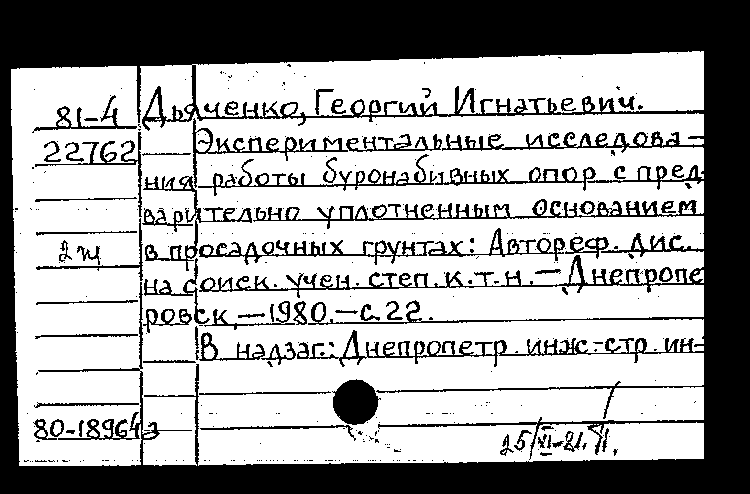 81-4 Дьяченко, Георгий Игнатьевич.
22762 Экспериментальные исследова-
ния работы буронабивных опор с пред-
варительно уплотненным основанием
2т в просадочных грунтах: Автореф. дис.
на соиск. учен. степ. к.т.н. — Днепропе
ровск, — 1980. — с. 22.
В надзаг.: Днепропетр. инж.-стр. ин-
80-18964а